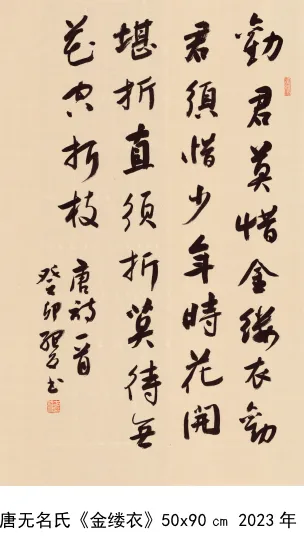 勸君莫惜金缕衣勸
君須惜少年時花開
堪折直須折莫待無
花空折枝
唐诗一首
癸卯
书
唐无名氏《金缕衣》50x90㎝ 2023年